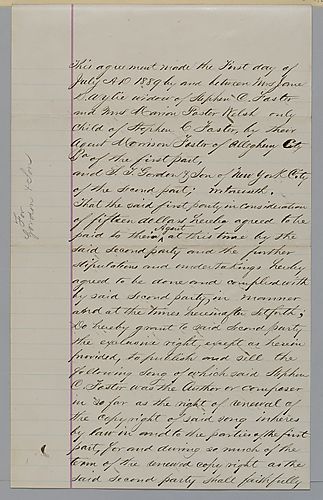 This agreement made the First day of
July A D 1889 by and between Mrs Jane
D. Wylie widow of Stephen C. Foster
and Mrs Marion Foster Welsh only
Child of Stephen C Foster, by their
Agent Morrison Foster of Allegheny City
Pa of the first part,
and S. T. Gordon & Son of New York City
of the second part; witnesseth.
That the said first party, in consideration
of fifteen dollars hereby agreed to be
paid to their Agent at this time by the
said second party and the further
stipulations and undertakings hereby
agreed to be done and complied with
by said second party, in manner
and at the times hereinafter set forth;
Do hereby grant to said second party
the exclusive right, except as herein
provided, to publish and sell the
following song of which said Stephen
C. Foster was the Author or composer
in so far as the right of renewal of
the copyright of said song inheres
by law in and to the parties of the first
part, for and during so much of the
term of the renewed copy right as the
said second party shall faithfully
For
Gordon & Son